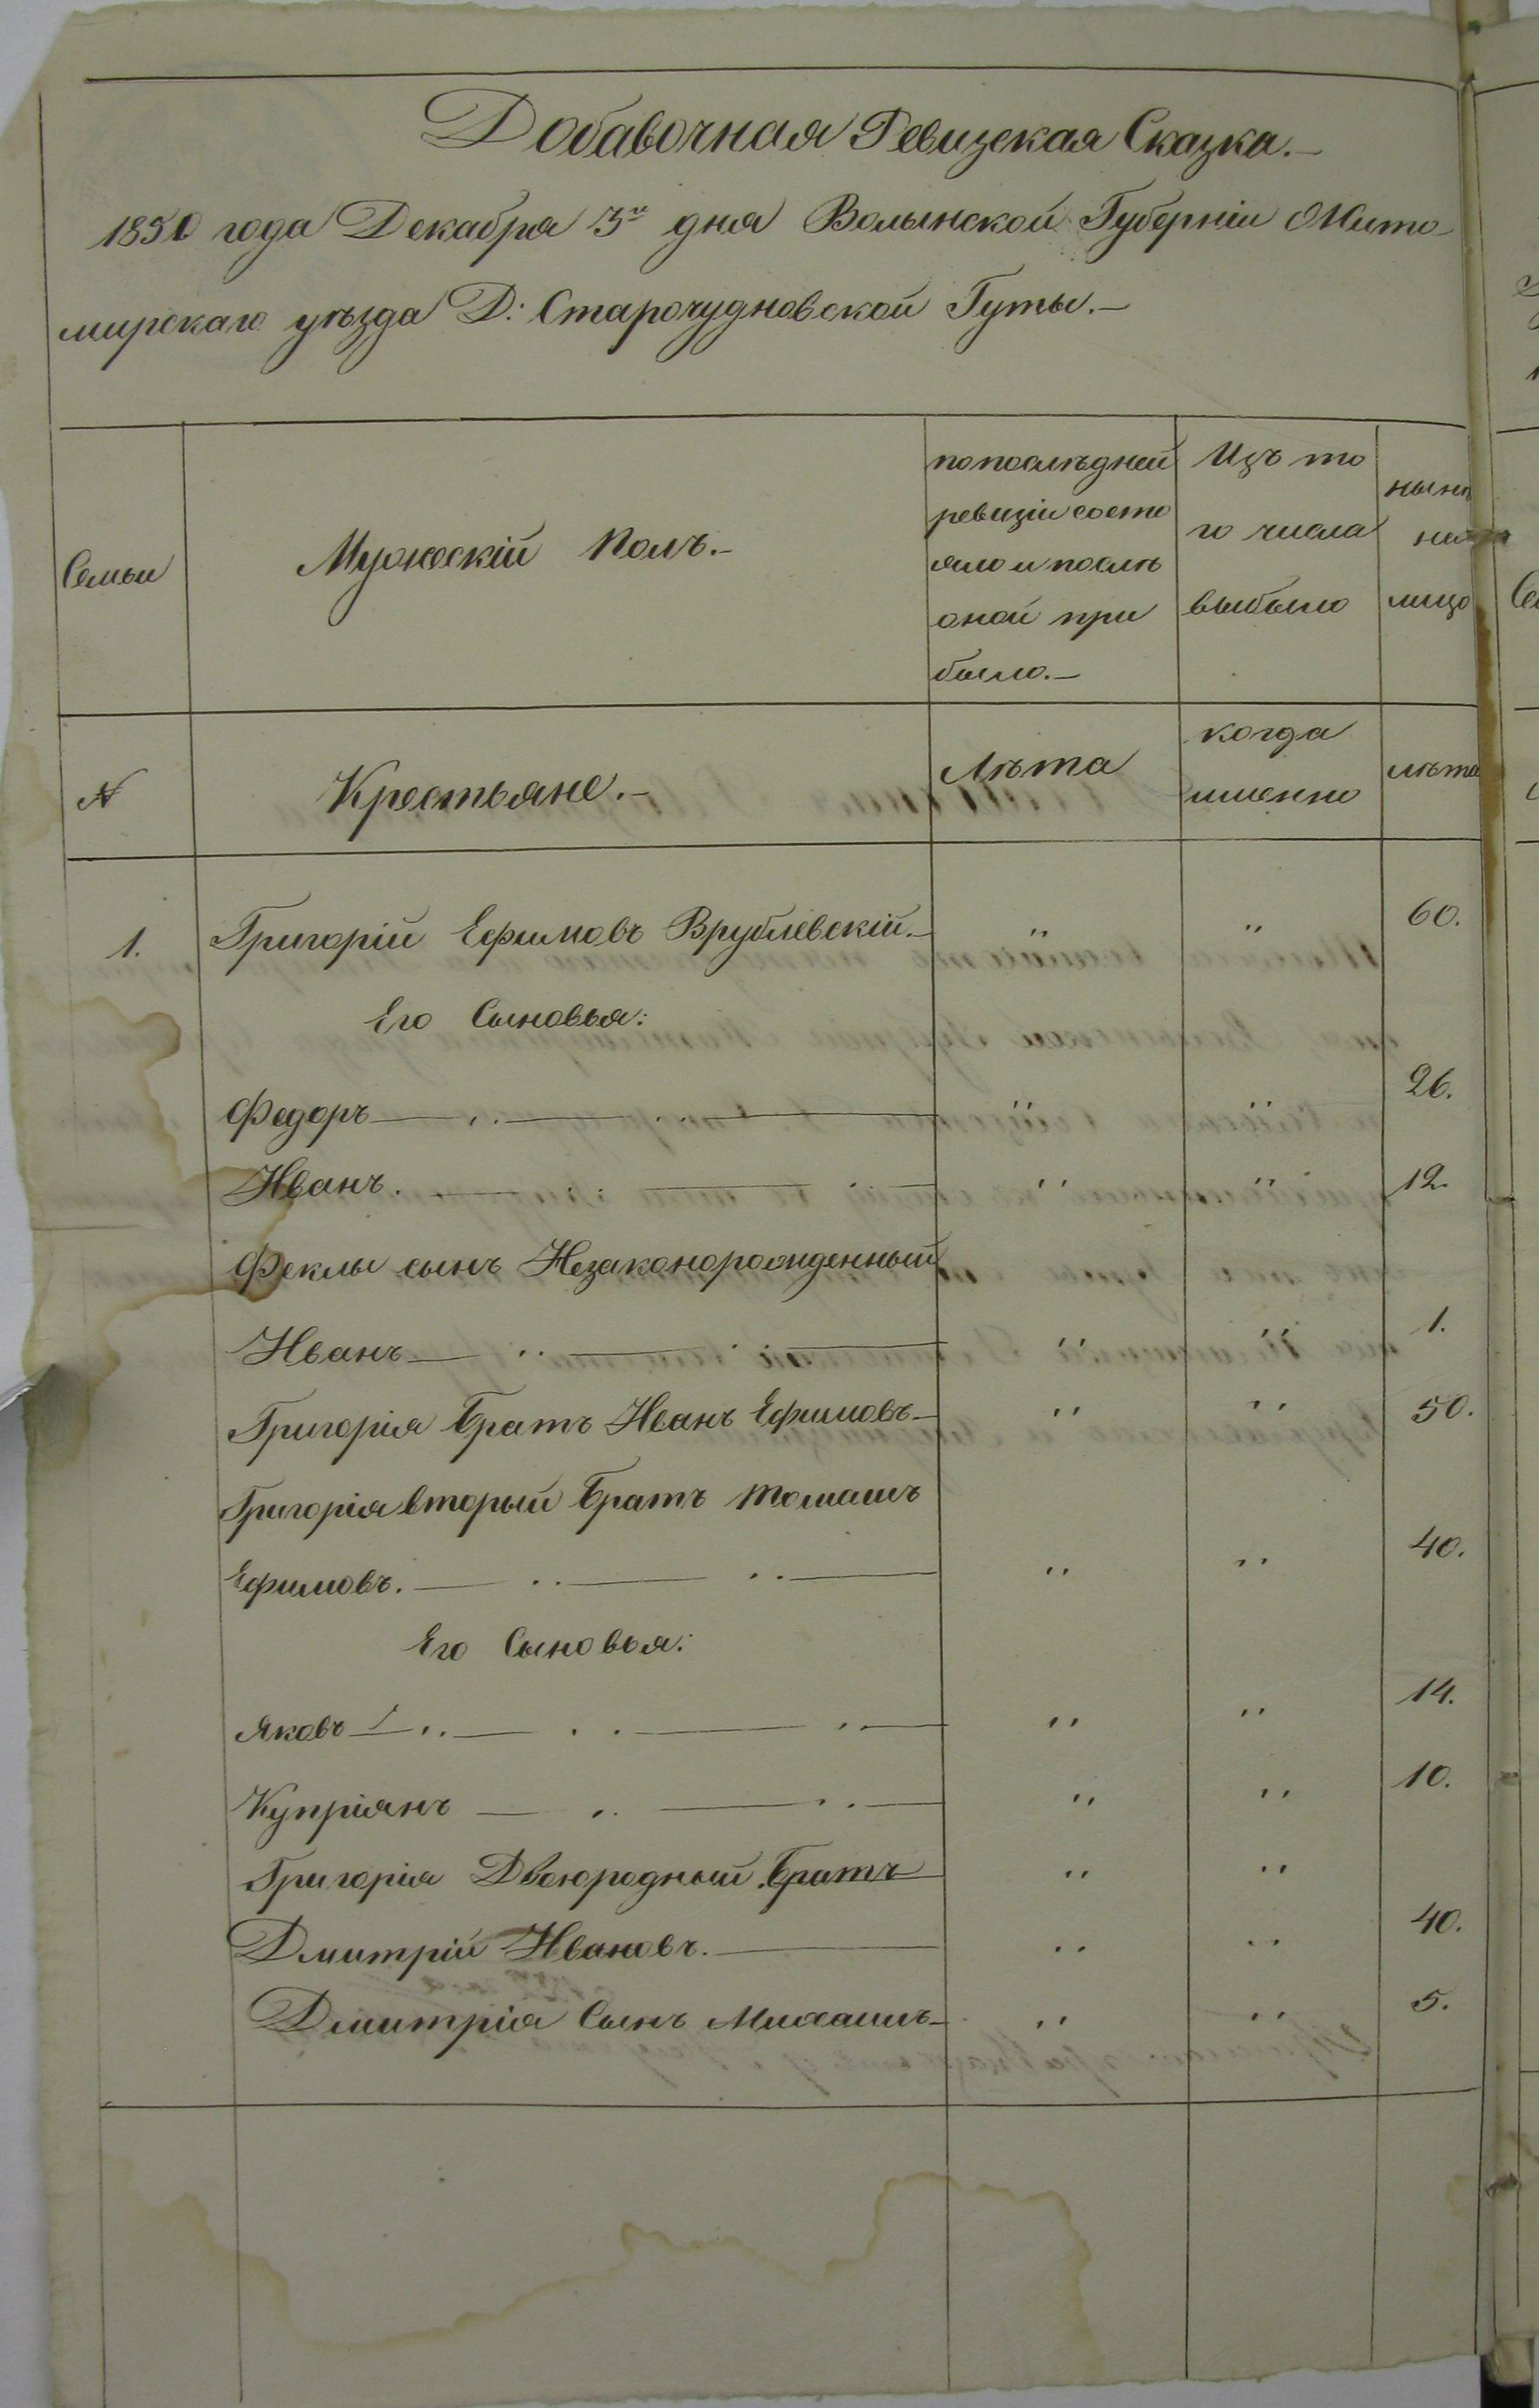 Добавочная Ревизская Сказка.—
1850 года Декабря 3го дня Волынской Губерніи Жито-
мирскаго уѣзда Д: Старочудновской Гуты.—
Семьи
Мужескій полъ.—
по послѣдней
ревизіи состо
яло и послѣ
оной при
было.—
Изъ то
го числа
выбыло
нынѣ
на
лицо
№
Крестьяне.—
Лѣта
когда
именно
лѣта
1. Григорій Ефимовъ Врублевскій.— " " 60.
Его Сыновья:
Федоръ — " — " — " " 26.
Иванъ. — " — " — " " 12.
Феклы сынъ Незаконорожденный
Иванъ — " — " — " " 1.
Григорія Братъ Иванъ Ефимовъ— " " 50.
Григорія вторый Братъ Томашъ
Ефимовъ. — " — " — " " 40.
Его Сыновья:
Яковъ — " — " — " — " " 14.
Купріянъ — " — " — " " 10.
Григорія Двоюродный Братъ " "
Дмитрій Ивановъ. — " " 40.
Дмитрія Сынъ Михаилъ— " " 5.